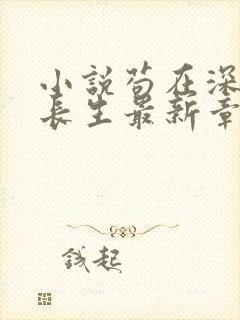 小說苟在深
長生最新章
錢起